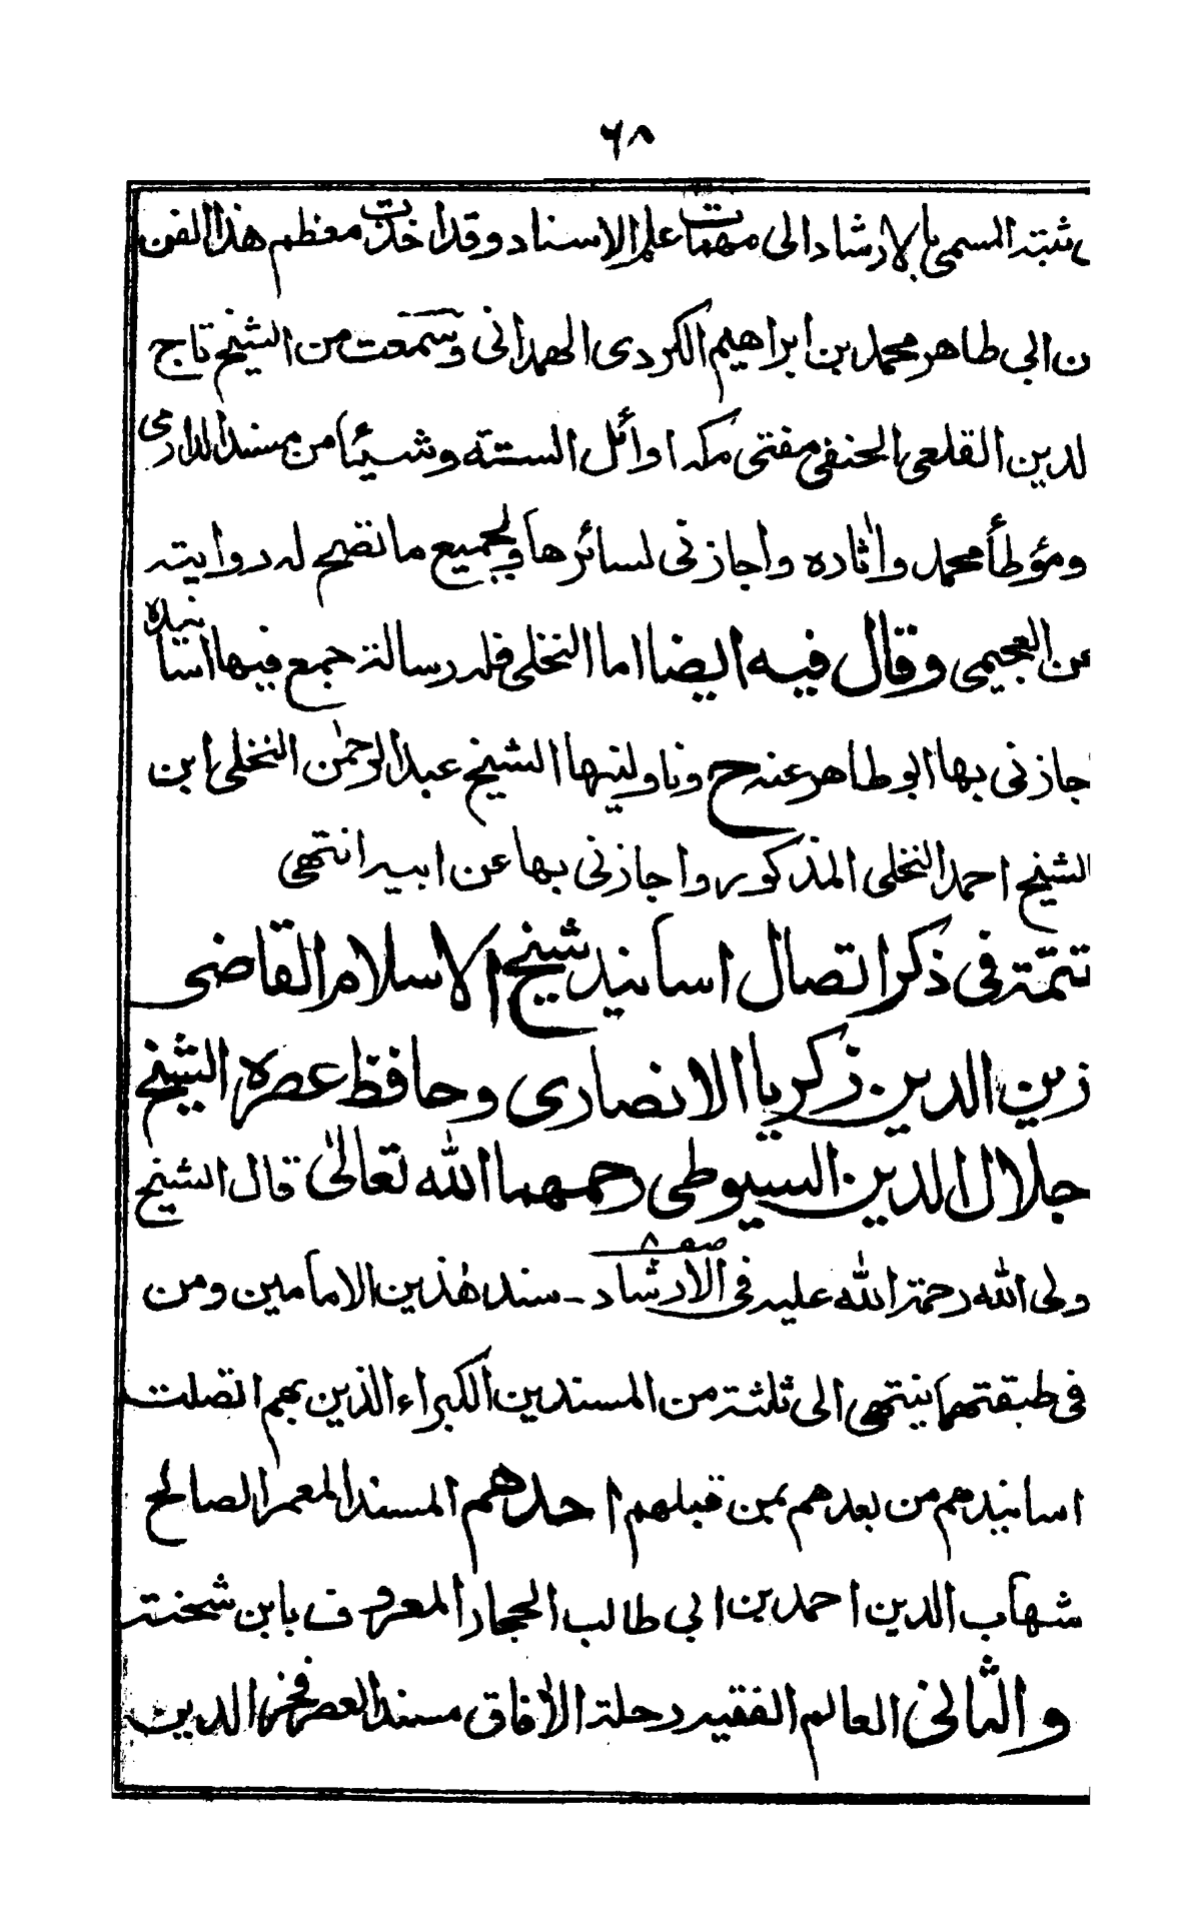 ٦٨
ثبته المسمى بالارشاد الى مهمات علم الاسناد وقد اخذت معظم هذا الفن
ن ابي طاهر محمد بن ابراهيم الكردى الهمدانى وسمعت من الشيخ تاج
لدين القلعى الحنفى مفتى مكه اوائل الستة وشيئا من مسند الدارمى
ومؤطأ محمد واٰثاره واجازنى لسائرها ولجميع ما تصح له روايته
عن العجيمى وقال فيه ايضا اما النخلى فله رسالة جمع فيها اسانيده
جازنى بها ابو طاهر عنه ح وناولنيها الشيخ عبد الرحمٰن النخلى ابن
لشيخ احمد النخلى المذكور واجازنى بها عن ابيه انتهى
تتمّة فى ذكر اتصال اسانيد شيخ الاسلام القاضى
زين الدين زكريا الانصارى وحافظ عصره الشيخ
جلال الدين السيوطى رحمهما الله تعالىٰ قال الشيخ
ولى الله رحمة الله عليه فى الارشاد صفحه ٨ ـ سند هٰذين الامامين ومن
فى طبقتهما ينتهى الى ثلثة من المسندين الكبراء الذين بهم اتصلت
اسانيدهم من بعدهم بمن قبلهم احدهم المسند المعمر الصالح
شهاب الدين احمد بن ابي طالب الحجار المعروف بابن شحنة
والثانى العالم الفقيه رحلة الاٰفاق مسند العصر فخر الدين